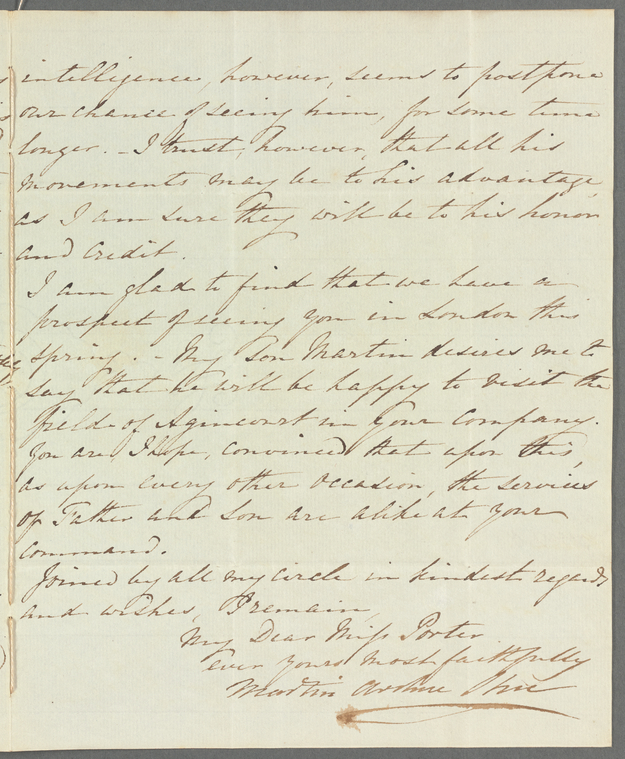 intelligence, however, seems to postpone
our chance of seeing him, for some time
longer. - I trust, however, that all his
movements may be to his advantage,
as I am sure they will be to his honor
and credit.
I am glad to find that we have a
prospect of seeing you in London this
spring. - My Son Martin desires me to
say that he will be happy to visit the
field of Agincourt in your company.
You are, I hope, convinced that upon this,
as upon every other occasion, the services
of Father and Son are alike at your
command.
Joined by all my circle in kindest regards
and wishes, I remain,
My Dear Miss Porter
ever yours most faithfully
Martin Archer Shee